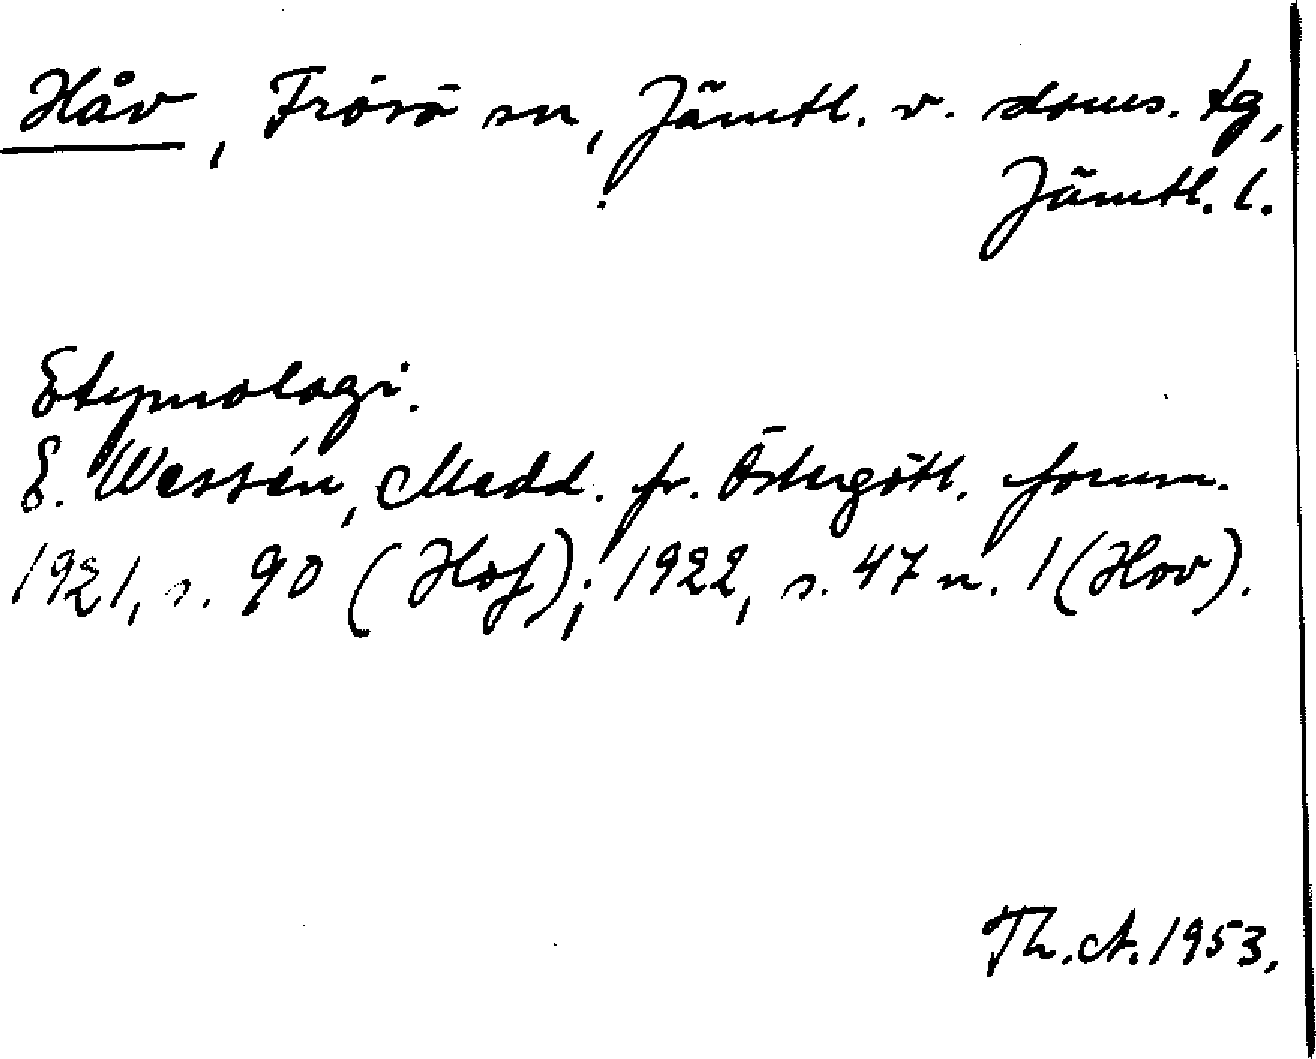 Håv, Frösö sn, Jämtl. v. doms. tg,
Jämtl. l.
Etymologi.
E. Wessén, Medd. fr. Östergötl. fornm.
1921, s. 90 (Hof); 1922, s. 47 n. 1 (Hov).
Th. A. 1953.